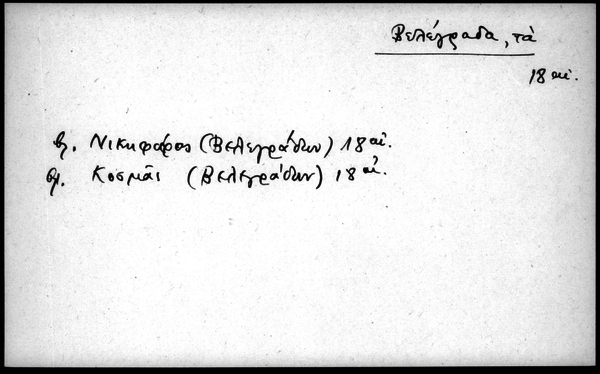 Βελέγραδα, τὰ
18 αἰ.
βλ. Νικηφόρος (Βελεγράδων) 18 αἰ.
βλ. Κοσμᾶς (Βελεγράδων) 18 αἰ.